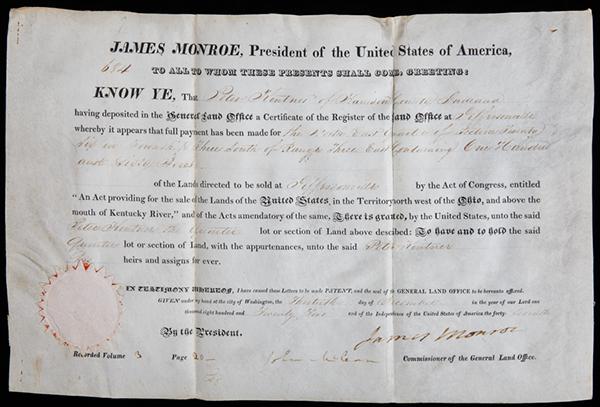 JAMES MONROE, President of the United States of America,
684
TO ALL TO WHOM THESE PRESENTS SHALL COME, GREETING:
KNOW YE, That Peter of Harrison County Indiana
having deposited in the General Land Office a Certificate of the Register of the Land Office at Jeffersonville
whereby it appears that full payment has been made for the North East quarter of Section Twenty
Six in Township Three South of Range Three East Containing One Hundred
and Sixty Acres
of the Lands directed to be sold at Jeffersonville by the Act of Congress, entitled
"An Act providing for the sale of the Lands of the United States, in the Territory north west of the Ohio, and above the
mouth of Kentucky River," and of the Acts amendatory of the same, There is granted, by the United States, unto the said
Peter the Quarter lot or section of Land above descibed: To have and to hold the said
Quarter lot or section of Land, with the appurtenances, unto the said Peter
heirs and assigns for ever.
IN TESTIMONY WHEREOF, I have caused these Letters to be made PATENT, and the seal of the GENERAL LAND OFFICE to be hereunto affixed.
GIVEN under my hand at the city of Washington, the day of December in the year of our Lord one
thousand eight hundred and Twenty and of the Independence of the United States of America the forty-
By the President.
James Monroe
Recorded Volume 3 Page John McLean Commissioner of the General Land Office.